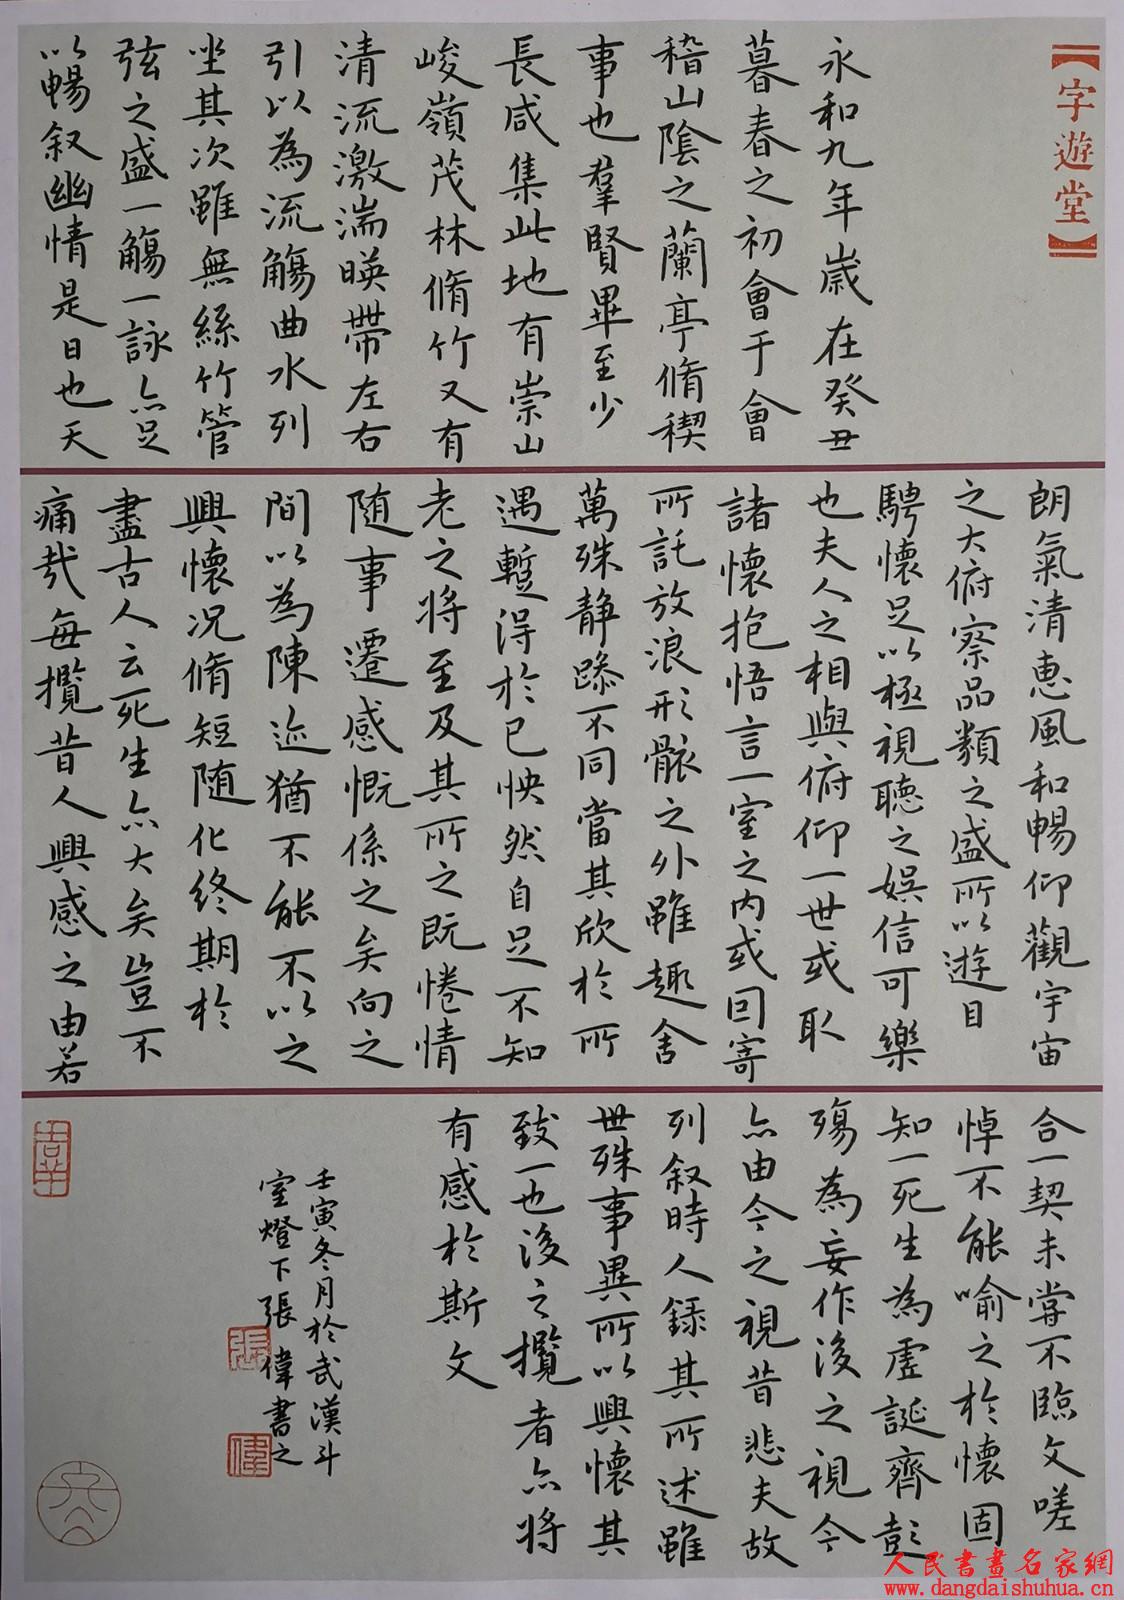 【字遊堂】
永和九年歲在癸丑
暮春之初會于會
稽山陰之蘭亭脩稧
事也羣賢畢至少
長咸集此地有崇山
峻嶺茂林脩竹又有
清流激湍暎帶左右
引以為流觴曲水列
坐其次雖無絲竹管
弦之盛一觴一詠亦足
以暢叙幽情是日也天
朗氣清惠風和暢仰觀宇宙
之大俯察品類之盛所以遊目
騁懷足以極視聽之娛信可樂
也夫人之相與俯仰一世或取
諸懷抱悟言一室之內或回寄
所託放浪形骸之外雖趣舍
萬殊静躁不同當其欣於所
遇蹔得於己怏然自足不知
老之將至及其所之既惓情
随事遷感慨係之矣向之
間以為陳迹猶不能不以之
興懷况脩短随化終期於
盡古人云死生亦大矣豈不
痛哉每攬昔人興感之由若
合一契未甞不臨文嗟
悼不能喻之於懷固
知一死生為虛誕齊彭
殤為妄作後之視今
亦由今之視昔悲夫故
列叙時人錄其所述雖
世殊事異所以興懷其
致一也後之攬者亦將
有感於斯文
壬寅冬月於武漢斗
室燈下張偉書之
張
偉
人民書畫名家網
www.dangdaishuhua.cn